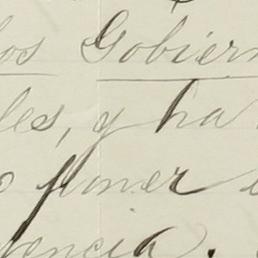 los Gobiern
les, y ha
poner